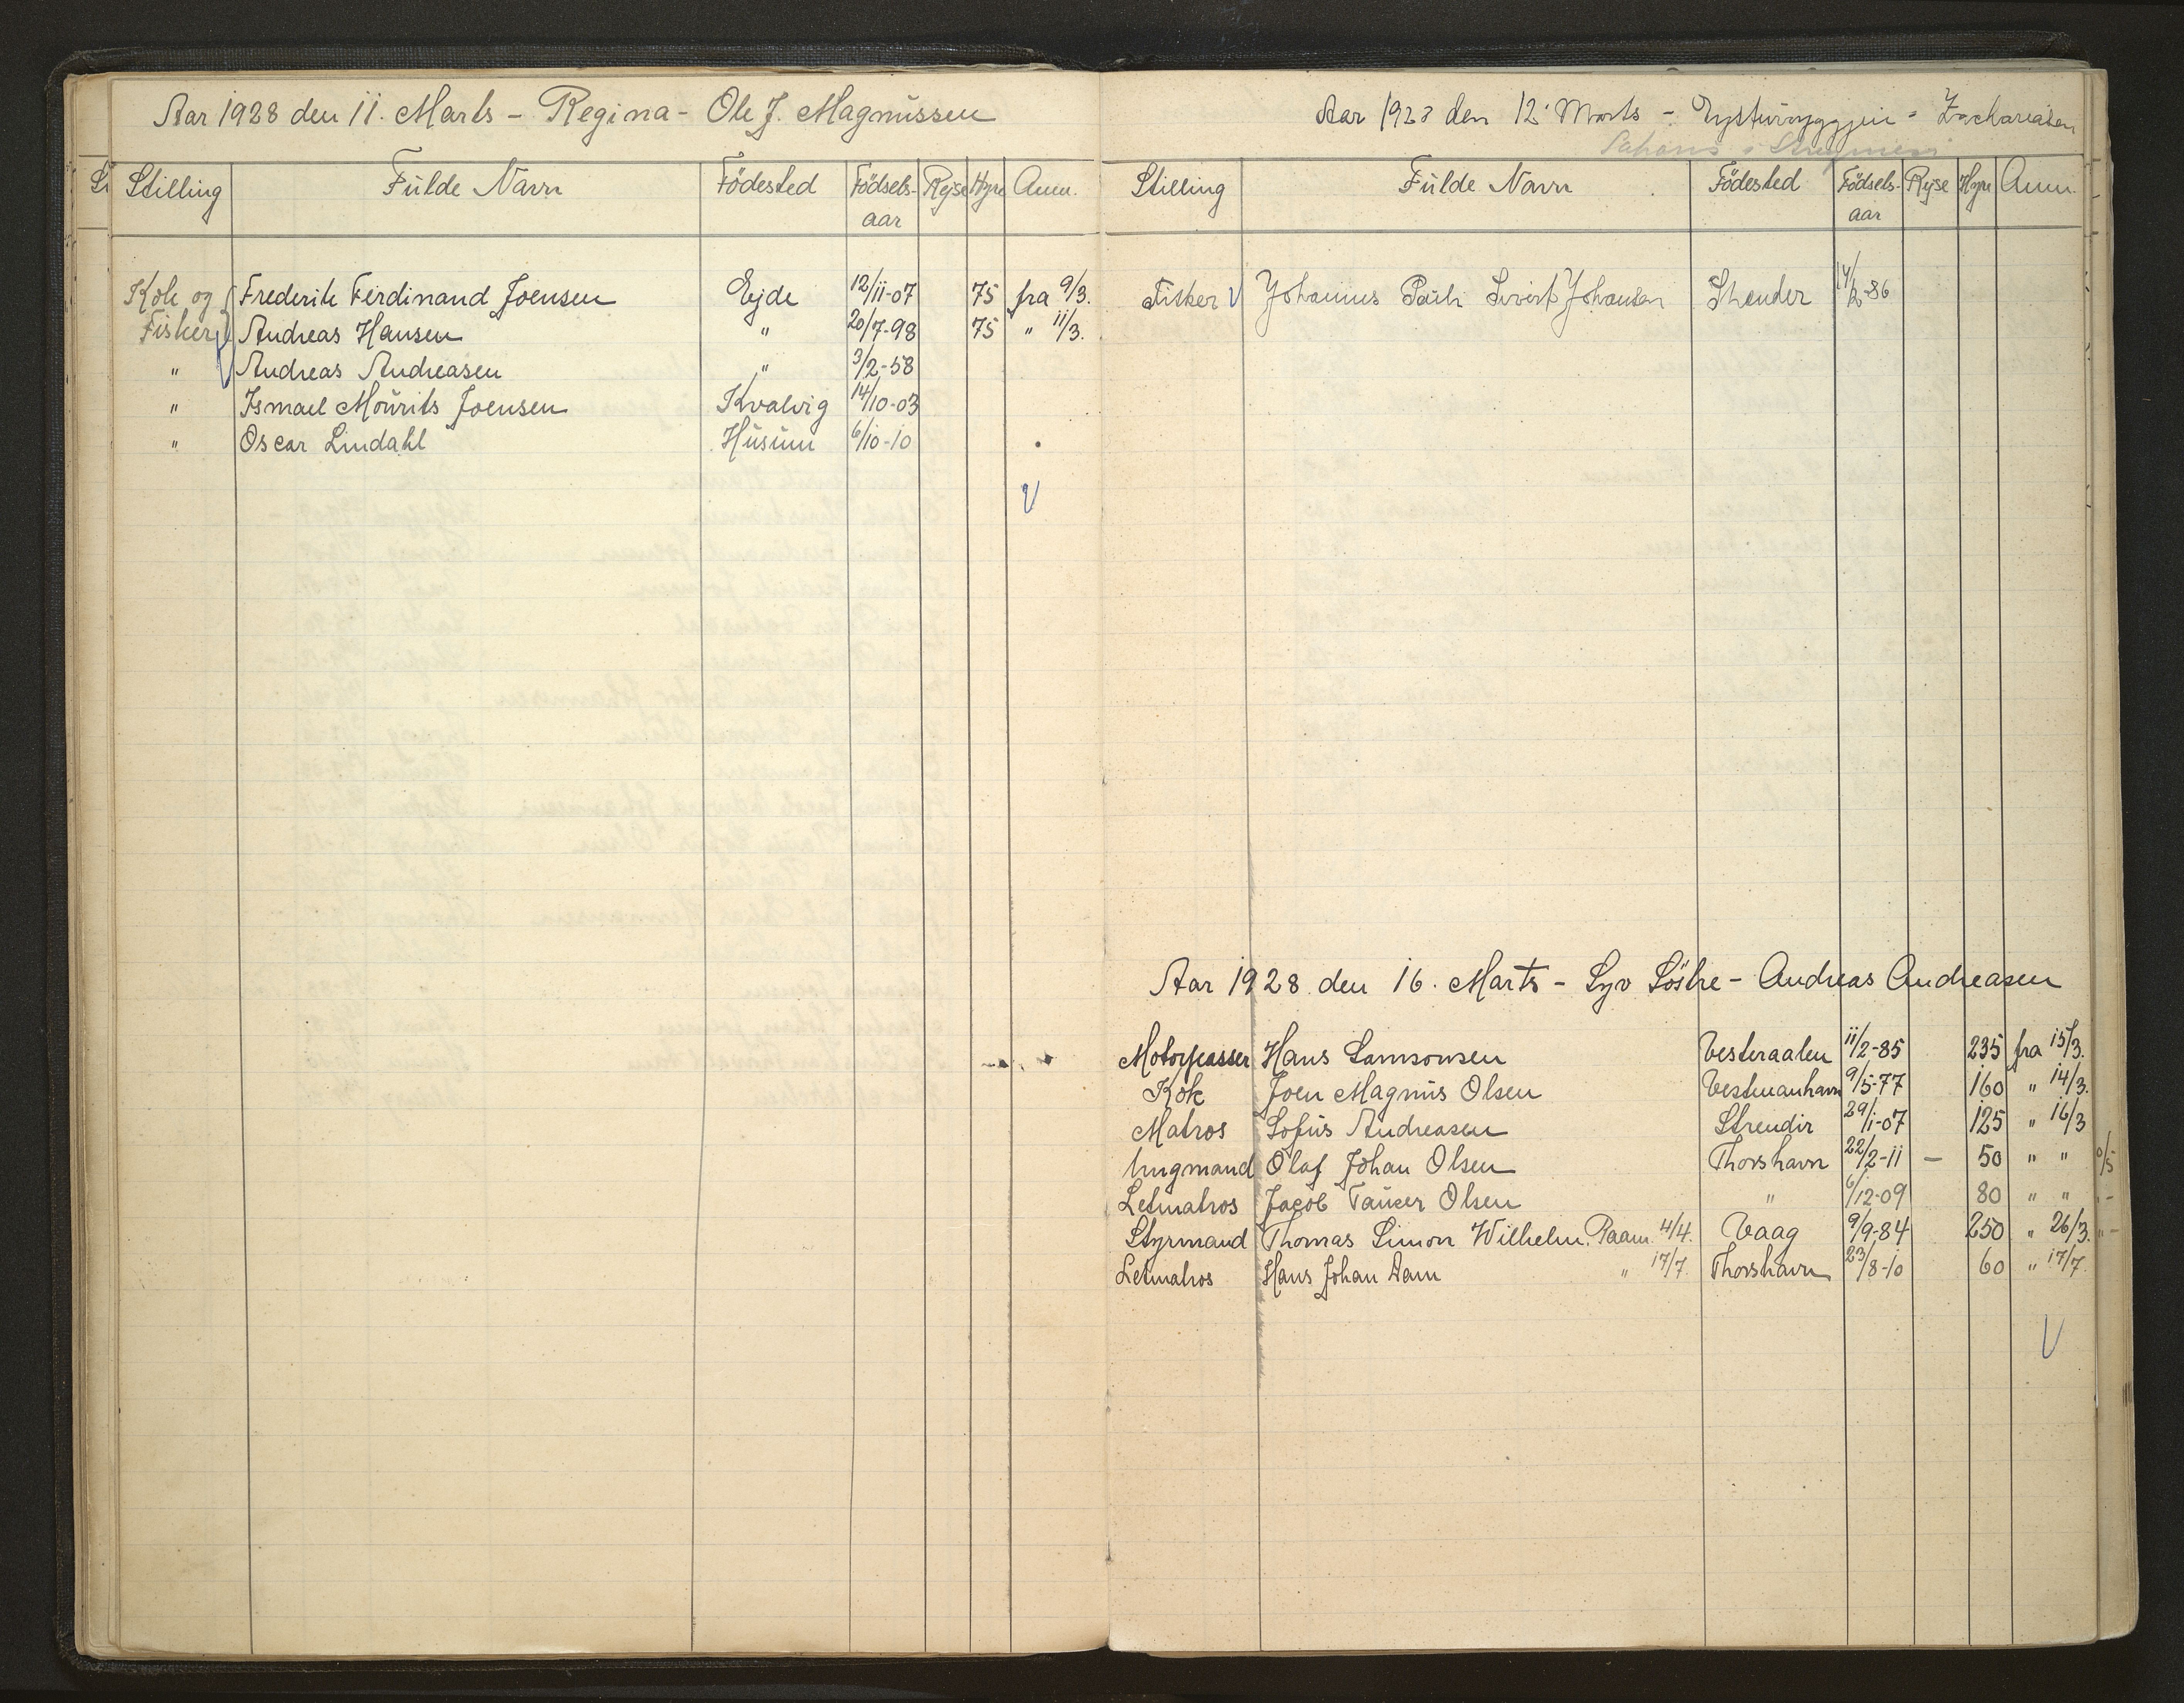 Aar 1928 den 11. Marts - Regina - Ole J. Magnussen
Stilling Fulde Navn Födested Födsels-aar Rejse Hyre Anm.
Kok og Frederik Ferdinand Joensen Ejde 12/11-07 75 fra 9/3.
Fisker Andreas Hansen " 20/7-98 75 " 11/3.
" Andreas Andreasen " 3/2-58
" Ismael Mourits Joensen Kvalvig 14/10-03
" Oscar Lindahl Husum 6/10-10
Aar 1928 den 12. Marts - Zachariasen
Stilling Fulde Navn Födested Födsels-aar Rejse Hyre Anm.
Fisker Johannus Pauli Johansen Strender -86
Aar 1928 den 16. Marts - Syv Söstre - Andreas Andreasen
Motorpasser Hans Samsonsen Vesteraalen 11/2-85 235 fra 15/3.
Kok Joen Magnus Olsen Vestmanhavn 9/5-77 160 " 14/3.
Matros Sofus Andreasen Strendir 29/1-07 125 " 16/3
Ungmand Olaf Johan Olsen Thorshavn 22/2-11 - 50 " "
Letmatros Jacob Tauser Olsen " 6/12-09 80 " "
Styrmand Thomas Simon Wilhelm. Paam. 4/4. Vaag 9/9-84 250 " 26/3.
Letmatros Hans Johan Dam " 17/7. Thorshavn 23/8-10 60 " 17/7.